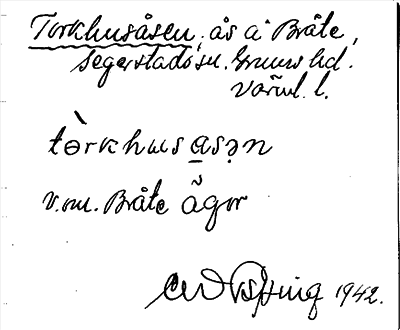 Torkhusåsen, ås å Bråte,
Segerstads sn. Grums hd.
Värml. l.
tòrkhusasən
v. om. Bråte ägor
1942.